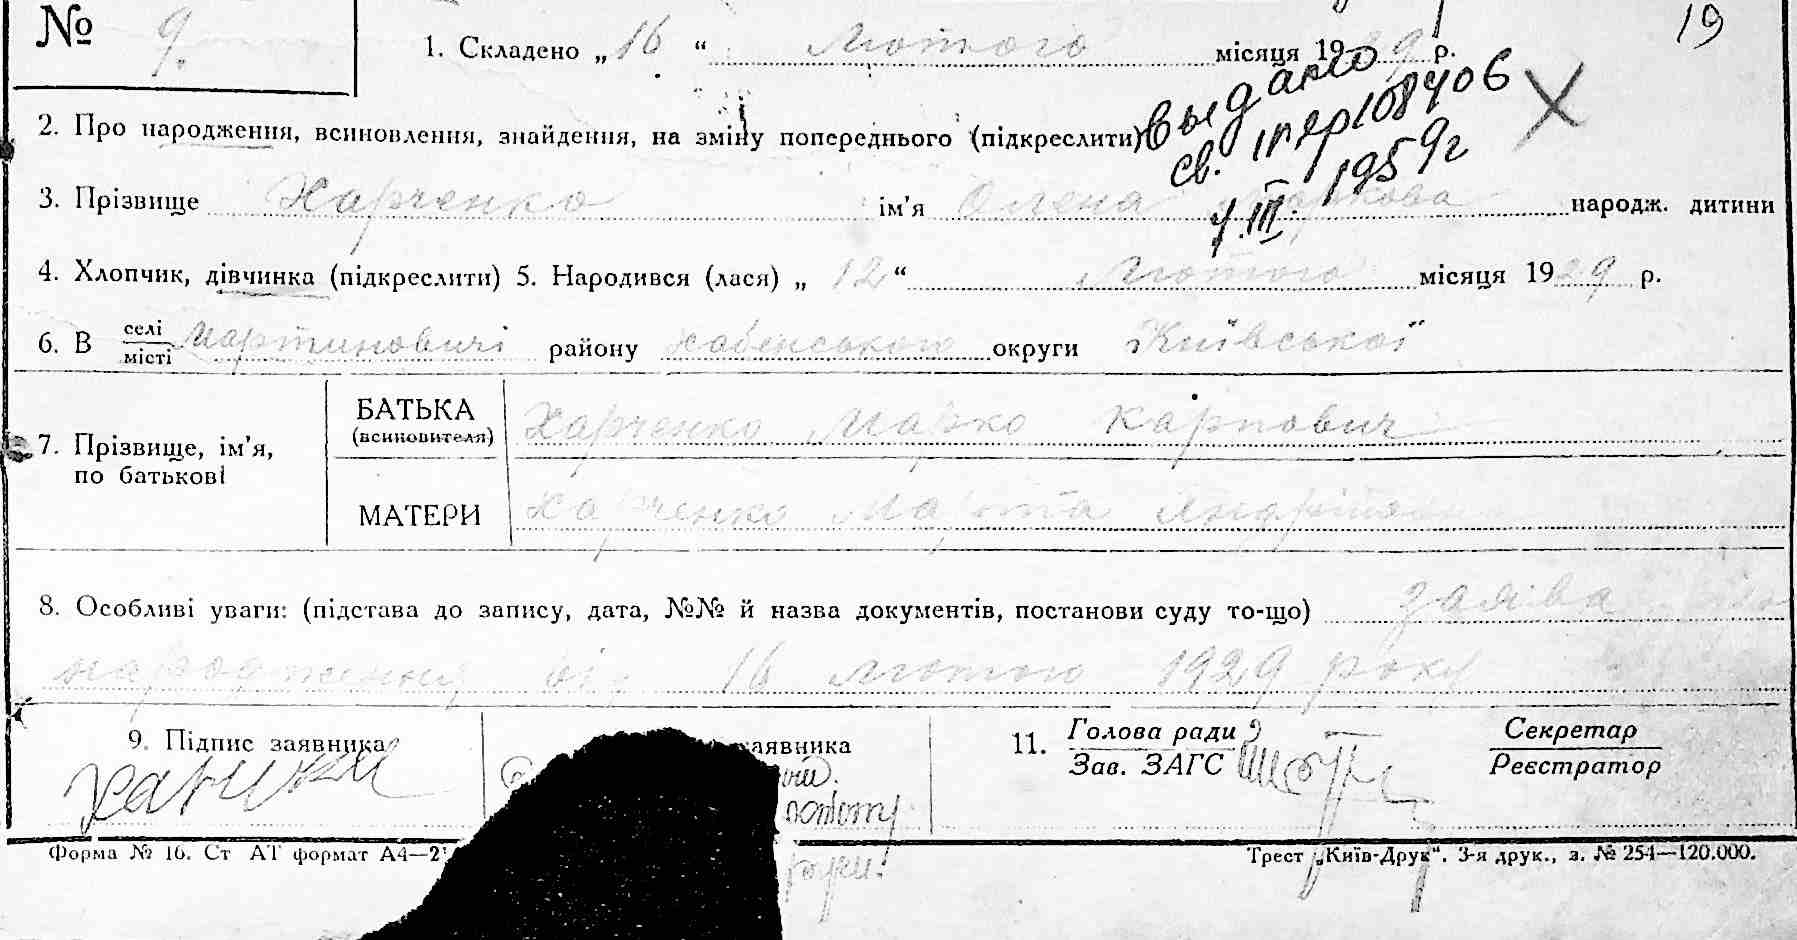 № 9.
19
1. Складено „16“ Лютого місяця 1929 р.
2. Про народження, всиновлення, знайдення, на зміну попереднього (підкреслити)
выдано
св.
7.III. 1959г
3. Прізвище Харченко ім'я Олена Маркова народж. дитини
4. Хлопчик, дівчинка (підкреслити) 5. Народився (лася) „12“ Лютого місяця 1929 р.
6. В селі Мартиновичі району Хабенського округи Київської
місті
7. Прізвище, ім'я, по батькові
БАТЬКА (всиновителя) Харченко Марко Карпович
МАТЕРИ Харченко Марта
8. Особливі уваги: (підстава до запису, дата, №№ й назва документів, постанови суду то-що) заява про
народження від 16 лютого 1929 року
9. Підпис заявника
заявника
11. Голова ради
Зав. ЗАГС
Секретар
Реєстратор
Форма № 16. Ст АТ формат А4—2
Трест „Київ-Друк“. 3-я друк., з. № 254—120.000.